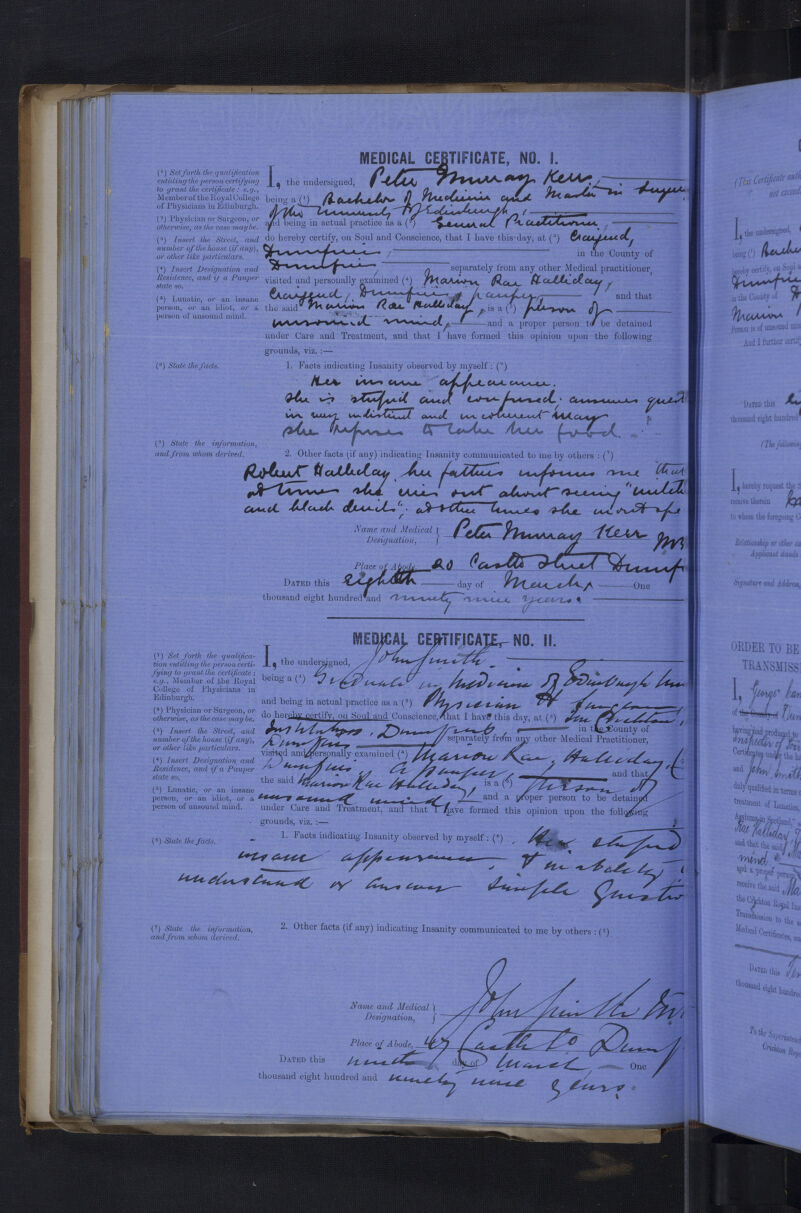 MEDICAL CERTIFICATE, NO. I.
(¹) Set forth the qualification
entitling the person certifying
to grant the certificate: e.g.,
Member of the Royal College
of Physicians in Edinburgh.
(²) Physician or Surgeon, or
otherwise, as the case may be.
(³) Insert the Street, and
number of the house (if any),
or other like particulars.
(⁴) Insert Designation and
Residence, and if a Pauper
state so.
(⁵) Lunatic, or an insane
person, or an idiot, or a
person of unsound mind.
I, the undersigned, Peter Murray Kerr,
being a (¹) Bachelor of Medicine and Master in
of the University of Edinburgh,
and being in actual practice as a (²) General Practitioner,
do hereby certify, on Soul and Conscience, that I have this day, at (³) Craigend,
Dumfries, in the County of
Dumfries, separately from any other Medical practitioner,
visited and personally examined (⁴) Marion Rae Halliday,
Craigend, Dumfries, pauper, and that
the said Marion Rae Halliday, is a (⁵) person of
unsound mind, and a proper person to be detained
under Care and Treatment, and that I have formed this opinion upon the following
grounds, viz. :—
(⁶) State the facts.
1. Facts indicating Insanity observed by myself : (⁶)
Her insane appearance.
she is stupid and confused. answers quest
in very indistinct and incoherent way
she refuses to take her food.
(⁷) State the information,
and from whom derived.
2. Other facts (if any) indicating Insanity communicated to me by others : (⁷)
Robert Halliday, her father informs me that
at times she cries out about seeing "
and black devils"; at other times she wont spe
Name and Medical
Designation, Peter Murray Kerr MB
Place of Abode, 20 Castle Street Dumf
DATED this eighth day of March, One
thousand eight hundred and ninety nine years.
MEDICAL CERTIFICATE, NO. II.
(¹) Set forth the qualifica-
tion entitling the person certi-
fying to grant the certificate;
e.g., Member of the Royal
College of Physicians in
Edinburgh.
(²) Physician or Surgeon, or
otherwise, as the case may be.
(³) Insert the Street, and
number of the house (if any),
or other like particulars.
(⁴) Insert Designation and
Residence, and if a Pauper
state so.
(⁵) Lunatic, or an insane
person, or an idiot, or a
person of unsound mind.
I, the undersigned, John Smith.
being a (¹) Graduate in Medicine of Edinburgh Uni
and being in actual practice as a (²) Physician &
do hereby certify, on Soul and Conscience, that I have this day, at (³) The Crichton
Institution, Dumfries, in the County of
Dumfries separately from any other Medical Practitioner,
visited and personally examined (⁴) Marion Rae, Halliday,
Dumfries a pauper, and that
the said Marion Rae Halliday, is a (⁵) person of
unsound mind, and a proper person to be detained
under Care and Treatment, and that I have formed this opinion upon the following
grounds, viz. :—
(⁶) State the facts.
1. Facts indicating Insanity observed by myself : (⁶) Her stupid
insane appearance & inability to
understand or answer simple Questio
(⁷) State the information,
and from whom derived.
2. Other facts (if any) indicating Insanity communicated to me by others : (⁷)
Name and Medical
Designation, John Smith M
Place of Abode, Castle St. Dumf
DATED this ninth day of March One
thousand eight hundred and ninety nine years.
(This Certificate
I, the undersigned,
being (¹) Bache
hereby certify, on Soul
Dumfries
in the County of
Marion
Person is of unsound
And I further certify
DATED this
thousand eight hundred
(The following
I, hereby request the
receive therein
to whom the foregoing
Relationship or other
Applicant stands
Signature and Address,
ORDER TO BE
TRANSMISS
I, George
of the County of Dum
having had produced to
Inspector of
Certificates under the
and John Smith
duly qualified in terms
treatment of Lunatics,
Asylums in Scotland,
Rae Halliday
and that the said
mind
and a proper person
receive the said Ma
the Crichton Royal Ins
Transmission to the
Medical Certificates,
DATED this
thousand eight hundred
To the Superintendent
Crichton Roy